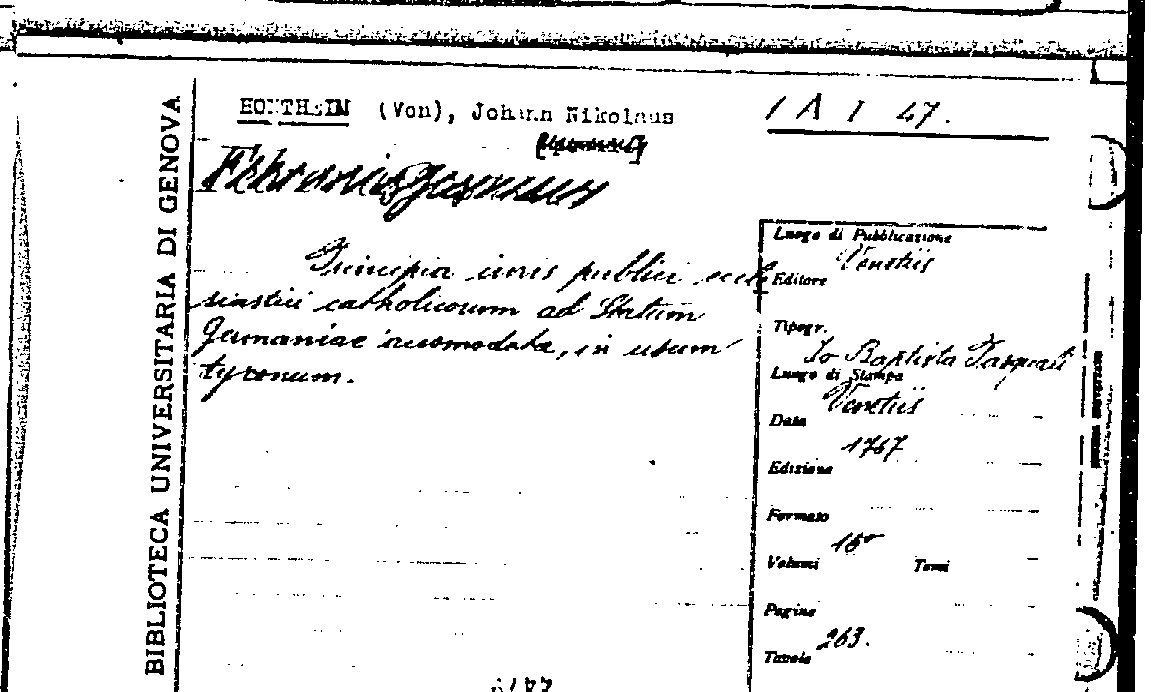 BIBLIOTECA UNIVERSITARIA DI GENOVA
HONTHEIM (Von), Johann Nikolaus
1 A I 47.
Febronio Justinus
Principia iuris publici eccle
siastici catholicorum ad Statum
Germaniae accomodata, in usum
tyronum.
Luogo di Pubblicazione
Venetiis
Editore
Tipogr.
Jo Baptista Pasquali
Luogo di Stampa
Venetiis
Data
1767
Edizione
Formato
16°
Volumi Tomi
Pagine
263.
Tavole